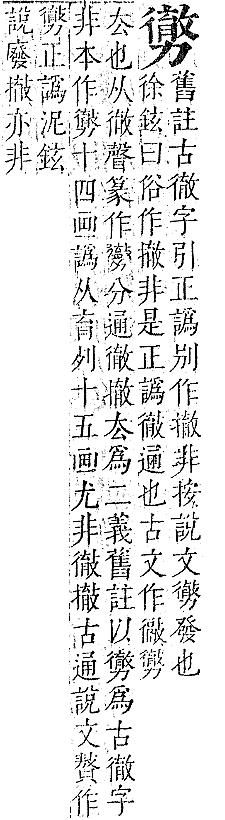 勶
舊註古徹字引正譌別作撤非按說文勶發也
徐鉉曰俗作撤非是正譌徹通也古文作𢕹勶
厺也从徹聲篆作勶分通徹撤厺為二義舊註以勶為古徹字
非本作勶十四画譌从育列十五画尤非徹撤古通說文贅作
勶正譌泥鉉
說廢撤亦非